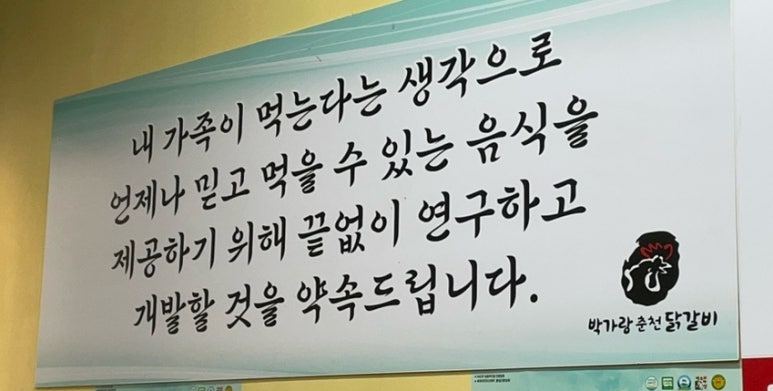 내 가족이 먹는다는 생각으로
언제나 믿고 먹을 수 있는 음식을
제공하기 위해 끝없이 연구하고
개발할 것을 약속드립니다.
박가랑 춘천 닭갈비